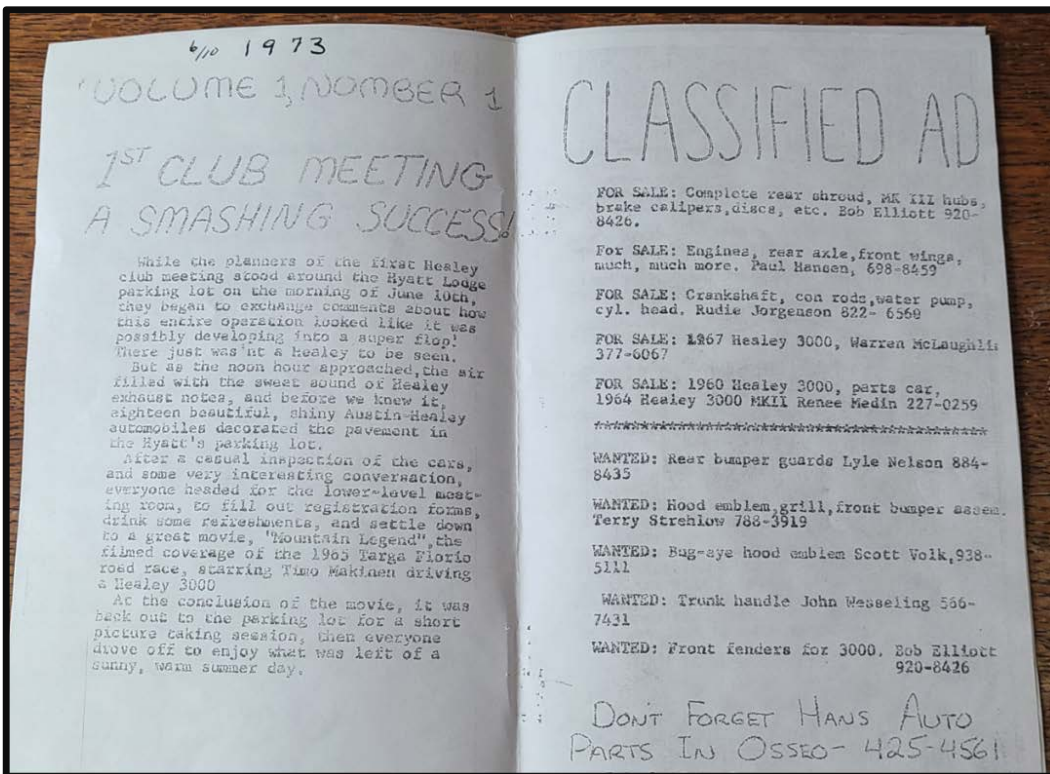 6/10 1973
VOLUME 1, NOMBER 1
1ST CLUB MEETING
A SMASHING SUCCESS!
While the planners of the first Healey
club meeting stood around the Hyatt Lodge
parking lot on the morning of June 10th,
they began to exchange comments about how
this entire operation looked like it was
possibly developing into a super flop!
There just was'nt a Healey to be seen.
But as the noon hour approached,the air
filled with the sweet sound of Healey
exhaust notes, and before we knew it,
eighteen beautiful, shiny Austin-Healey
automobiles decorated the pavement in
the Hyatt's parking lot.
After a casual inspection of the cars,
and some very interesting conversation,
everyone headed for the lower-level meet-
ing room, to fill out registration forms,
drink some refreshments, and settle down
to a great movie, "Mountain Legend",the
filmed coverage of the 1965 Targa Florio
road race, starring Timo Makinen driving
a Healey 3000
At the conclusion of the movie, it was
back out to the parking lot for a short
picture taking session, then everyone
drove off to enjoy what was left of a
sunny, warm summer day.
CLASSIFIED AD
FOR SALE: Complete rear shroud, MK III hubs,
brake calipers,discs, etc. Bob Elliott 920-
8426.
For SALE: Engines, rear axle,front wings,
much, much more. Paul Hansen, 698-8459
FOR SALE: Crankshaft, con rods,water pump,
cyl. head. Rudie Jorgenson 822- 6569
FOR SALE: 1967 Healey 3000, Warren McLaughlin
377-6067
FOR SALE: 1960 Healey 3000, parts car,
1964 Healey 3000 MKII Renee Medin 227-0259
*******************************************
WANTED: Rear bumper guards Lyle Nelson 884-
8435
WANTED: Hood emblem,grill,front bumper assem.
Terry Strehlow 788-3919
WANTED: Bug-eye hood emblem Scott Volk,938-
5111
WANTED: Trunk handle John Wesseling 566-
7431
WANTED: Front fenders for 3000. Bob Elliott
920-8426
DON'T FORGET HANS AUTO
PARTS IN OSSEO- 425-4561